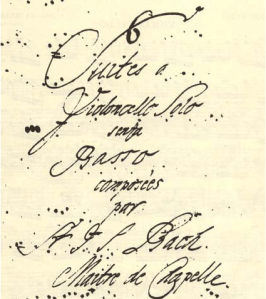 6
Suites a
Violoncello Solo
senza
Basso
composées
par
Sr. J. S. Bach.
Maitre de Capelle.